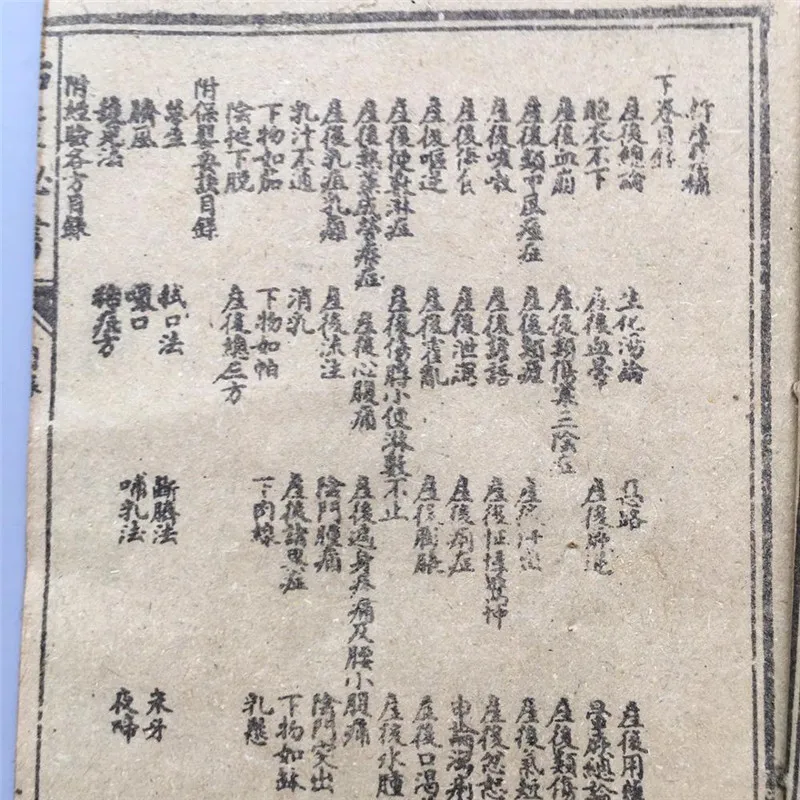 下卷目錄
產後總論 生化湯論 惡路 產後用
胞衣不下 產後血暈 產後厥逆 暈厥總論
產後血崩 產後類傷寒三陰症 產後類傷
產後類中風痙症 產後類瘧 產後汗出 產後氣短
產後咳嗽 產後譫語 產後怔忡驚悸 產後忿怒
產後傷食 產後泄瀉 產後痢症 瀉痢
產後嘔逆 產後霍亂 產後膨脹 產後口渴
產後便數淋症 產後傷脬小便淋數不止 產後水腫
產後熱蒸成勞瘵症 產後心腹痛 產後遍身疼痛及腰小腹痛
產後乳疽乳癰 產後流注 陰門腫痛 陰門突出
乳汁不通 消乳 產後諸症 下物如缽
下物如茄 下物如帕 下肉線 乳懸
陰挺下脫 產後方
附保嬰要訣目錄
拭口法 斷臍法
臍風 噤口 哺乳法 夜啼
護兒法 方
附經驗各方目錄